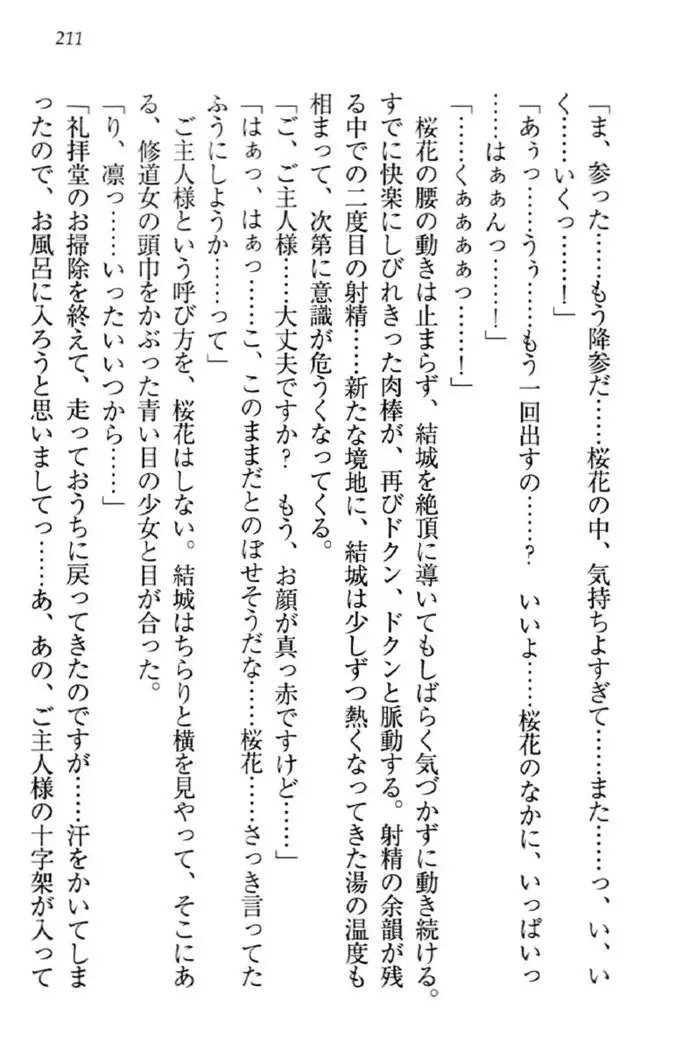 211
「ま、参った……もう降参だ……桜花の中、気持ちよすぎて……また……っ、い、い
く……いくっ……！」
「あぅっ……うぅ……もう一回出すの……？　いいよ……桜花のなかに、いっぱいっ
……はぁぁんっ……！」
「……くぁぁぁぁっ……！」
桜花の腰の動きは止まらず、結城を絶頂に導いてもしばらく気づかずに動き続ける。
すでに快楽にしびれきった肉棒が、再びドクン、ドクンと脈動する。射精の余韻が残
る中での二度目の射精……新たな境地に、結城は少しずつ熱くなってきた湯の温度も
相まって、次第に意識が危うくなってくる。
「ご、ご主人様……大丈夫ですか？　もう、お顔が真っ赤ですけど……」
「はぁっ、はぁっ……こ、このままだとのぼせそうだな……桜花……さっき言ってた
ふうにしようか……って」
ご主人様という呼び方を、桜花はしない。結城はちらりと横を見やって、そこにあ
る、修道女の頭巾をかぶった青い目の少女と目が合った。
「り、凛っ……いったいいつから……」
「礼拝堂のお掃除を終えて、走っておうちに戻ってきたのですが……汗をかいてしま
ったので、お風呂に入ろうと思いましてっ……あ、あの、ご主人様の十字架が入って